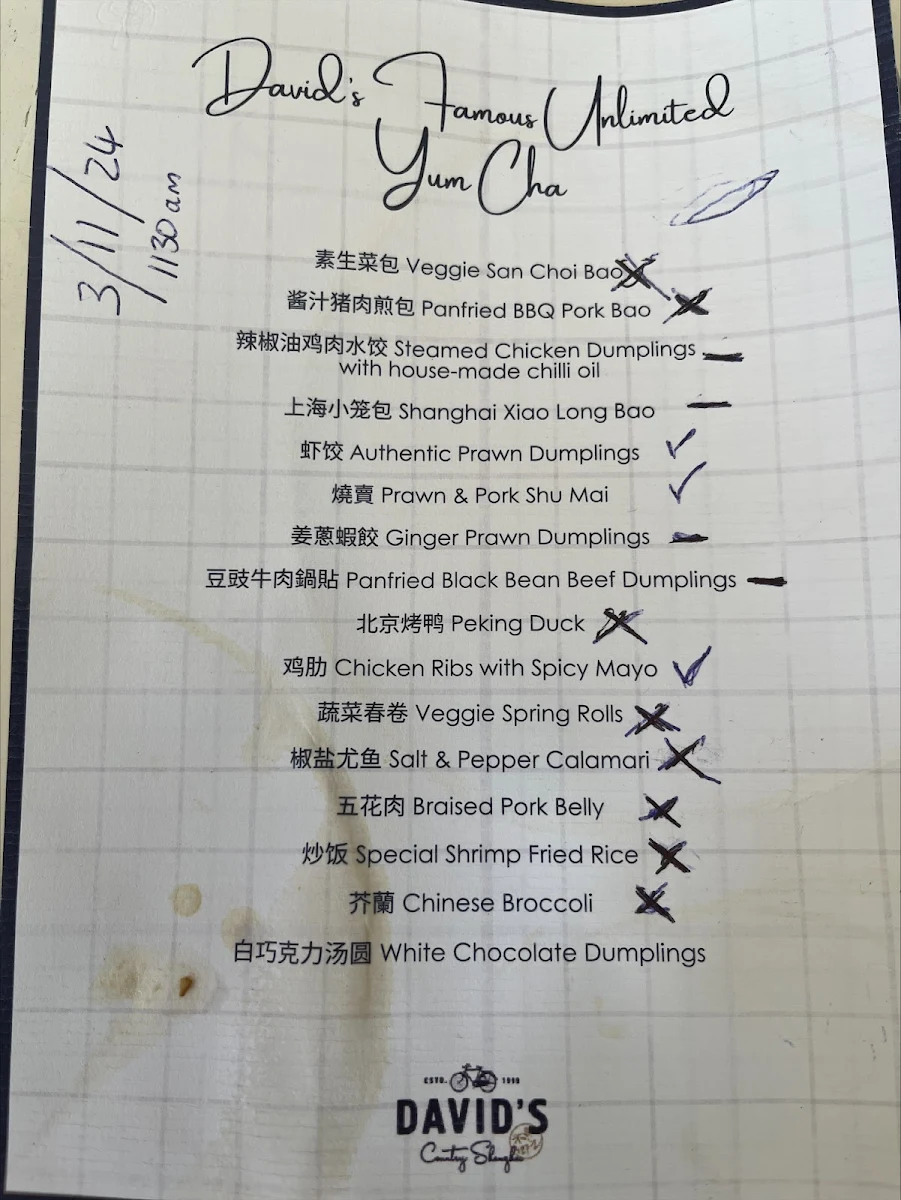 David's Famous Unlimited
Yum Cha
3/11/24
1130 am
素生菜包 Veggie San Choi Bao
酱汁猪肉煎包 Panfried BBQ Pork Bao
辣椒油鸡肉水饺 Steamed Chicken Dumplings
with house-made chilli oil
上海小笼包 Shanghai Xiao Long Bao
虾饺 Authentic Prawn Dumplings
燒賣 Prawn & Pork Shu Mai
姜蔥蝦餃 Ginger Prawn Dumplings
豆豉牛肉鍋貼 Panfried Black Bean Beef Dumplings
北京烤鸭 Peking Duck
鸡肋 Chicken Ribs with Spicy Mayo
蔬菜春卷 Veggie Spring Rolls
椒盐尤鱼 Salt & Pepper Calamari
五花肉 Braised Pork Belly
炒饭 Special Shrimp Fried Rice
芥蘭 Chinese Broccoli
白巧克力汤圆 White Chocolate Dumplings
ESTD. 1998
DAVID'S
Country Shanghai